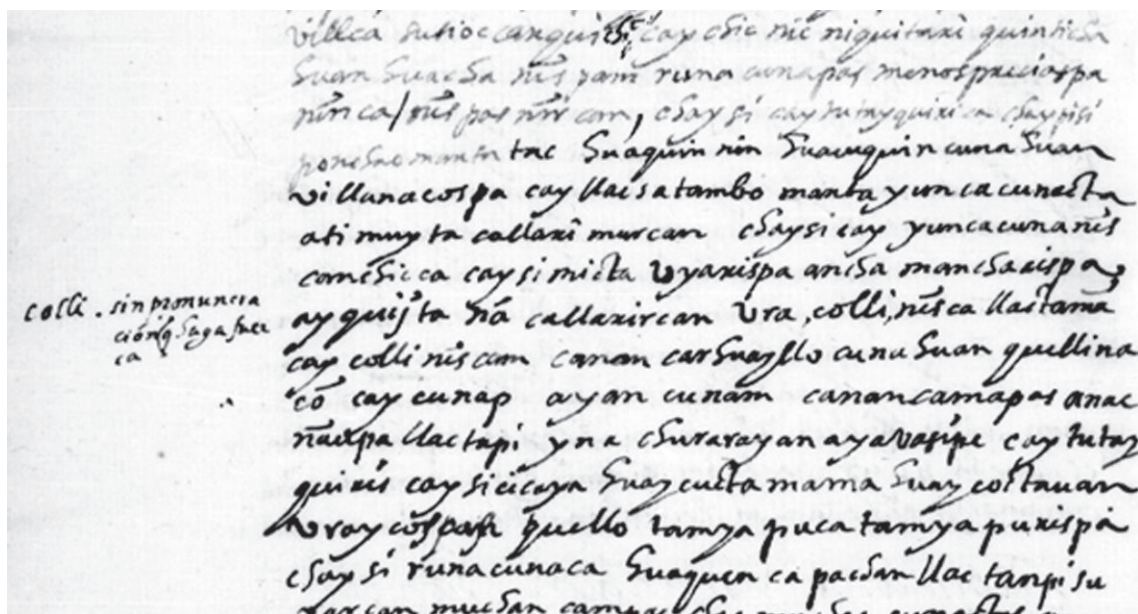 villca sutioc canqui cay chic nic niquitaxi quinticha
huan huacha nis pam runa cunapas menospreciaspa
nircan, chaysi cay tutayquiri chaupisi
ponchao mantatac huaquinnin huauquin cuna huan
villanacospa cay llacsatambo manta yuncacunacta
atimuyta callarimurcan chaysi cay yuncacuna nis
canchicca cay simicta vyarispa ancha mancharispa
ayquijta ña callarircan vra, colli, nisca llactamã
colli . sin pronuncia
cion q haga fuer
ca
cay colli niscam canan carhuayllo cuna huan quellina
cõ cay cunap ayan cunam canancamapas anac
ñaupa llactapi yna churarayan aya vasipe cay tutay
quiris caysi cicaya huaycucta mama huaycoctauan
vraycospas quello tamya puca tamya purispa
chaysi runacunaca huaquenca pachan llactanpi su